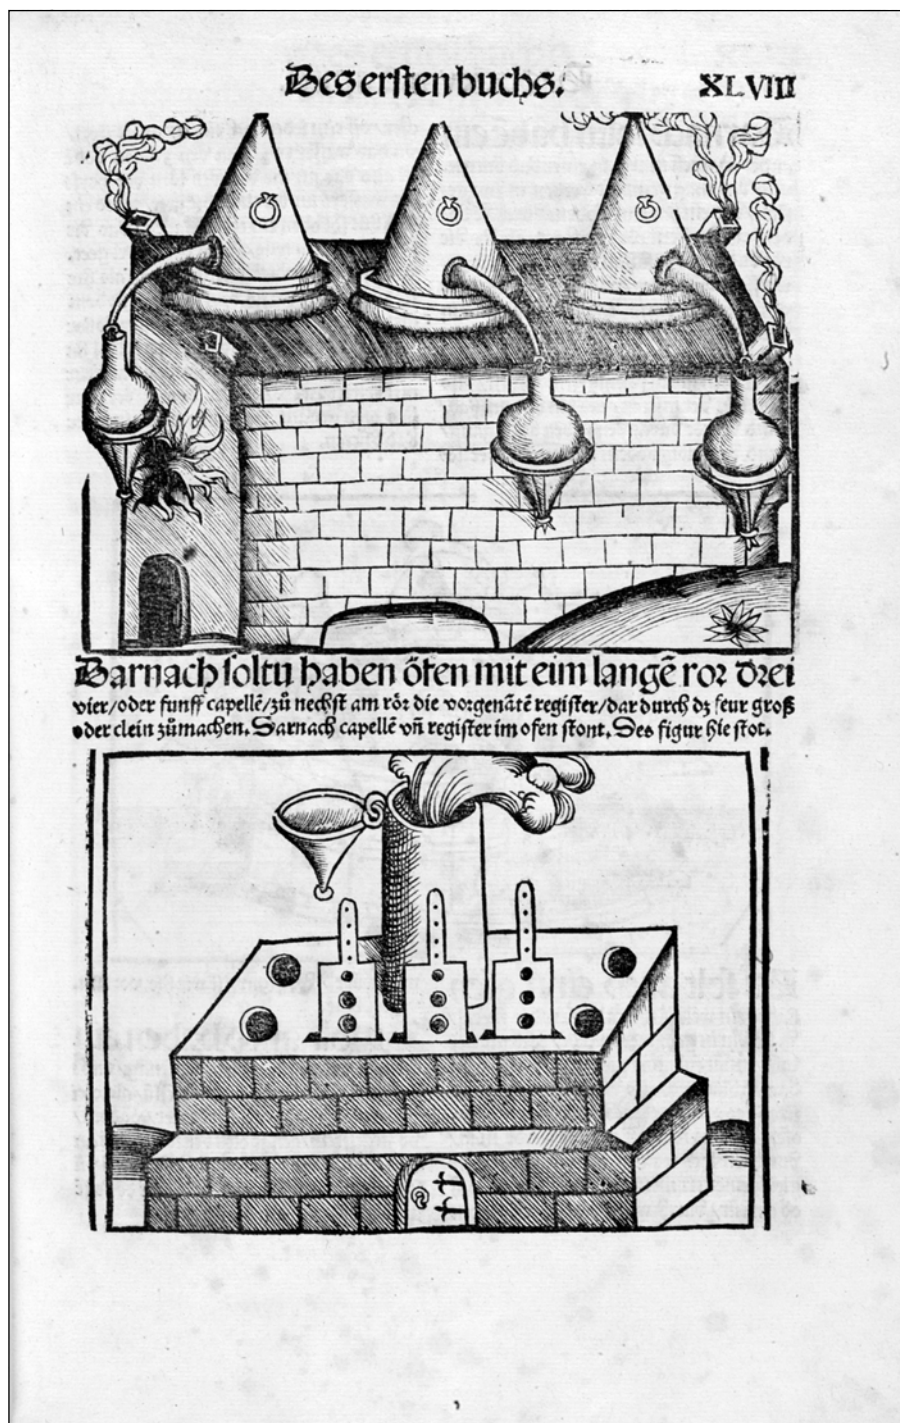 Des ersten buchs.
XLVIII
Darnach soltu haben öfen mit eim langẽ ror drei
vier/oder funff capellẽ/zů nechst am rör die vorgenãtẽ register/dar durch dz feur groß
oder clein zůmachen. Darnach capellẽ vñ register im ofen stont. Des figur hie stot.